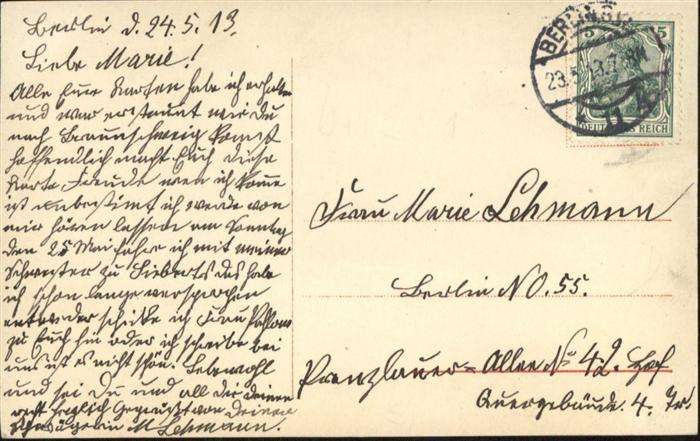 Berlin d. 24.5.13.
Liebe Marie!
Alle Eure Karten habe ich erhalten
und war erstaunt wie du
nach Braunschweig kommst
hoffendlich macht Euch diese
Karte Freude wen ich komme
ist unbestimt ich werde von
mir hören lassen am Sonntag
den 25 Mai fahre ich mit meiner
Schwester zu Lieberts das habe
ich schon lange versprochen
entweder schicke ich Frau
zu Euch hin oder ich schreibe bei
uns ist es nicht schön. Lebewohl
und sei Du und all die deinen
recht herzlich Gegrüßt von Deiner
Schwägerin M Lehmann.
BERLIN
23.5.13.7
5 5
DEUTSCHES REICH
Frau Marie Lehmann
Berlin NO. 55.
Prenzlauer-Allee No 42. Hof
Quergebäude. 4. Tr.